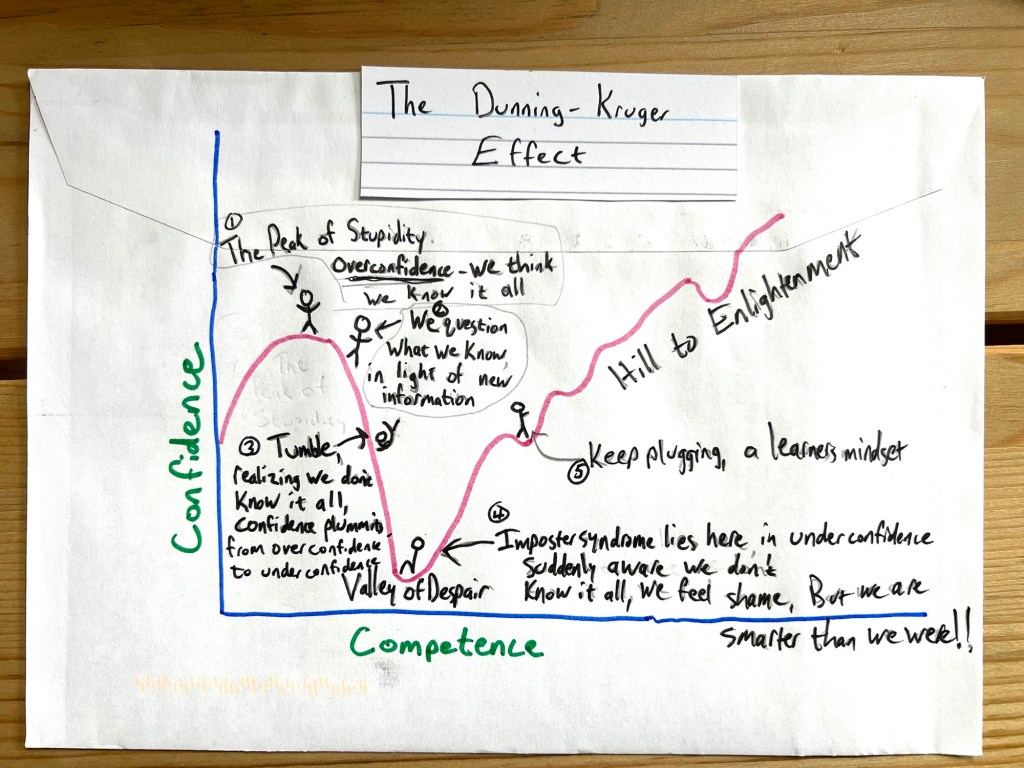 The Dunning-Kruger
Effect
①
The Peak of Stupidity.
Overconfidence - we think
we know it all
②
We question
what we know,
in light of new
information
The
Peak of
Stupidity
③ Tumble,
realizing we dont
Know it all,
Confidence plummits
from over confidence
to under confidence
Valley of Despair
④
Imposter syndrome lies here in under confidence
Suddenly aware we don't
Know it all, we feel shame, But we are
smarter than we were!!
⑤ Keep plugging, a learners mindset
Hill to Enlightenment
Confidence
Competence